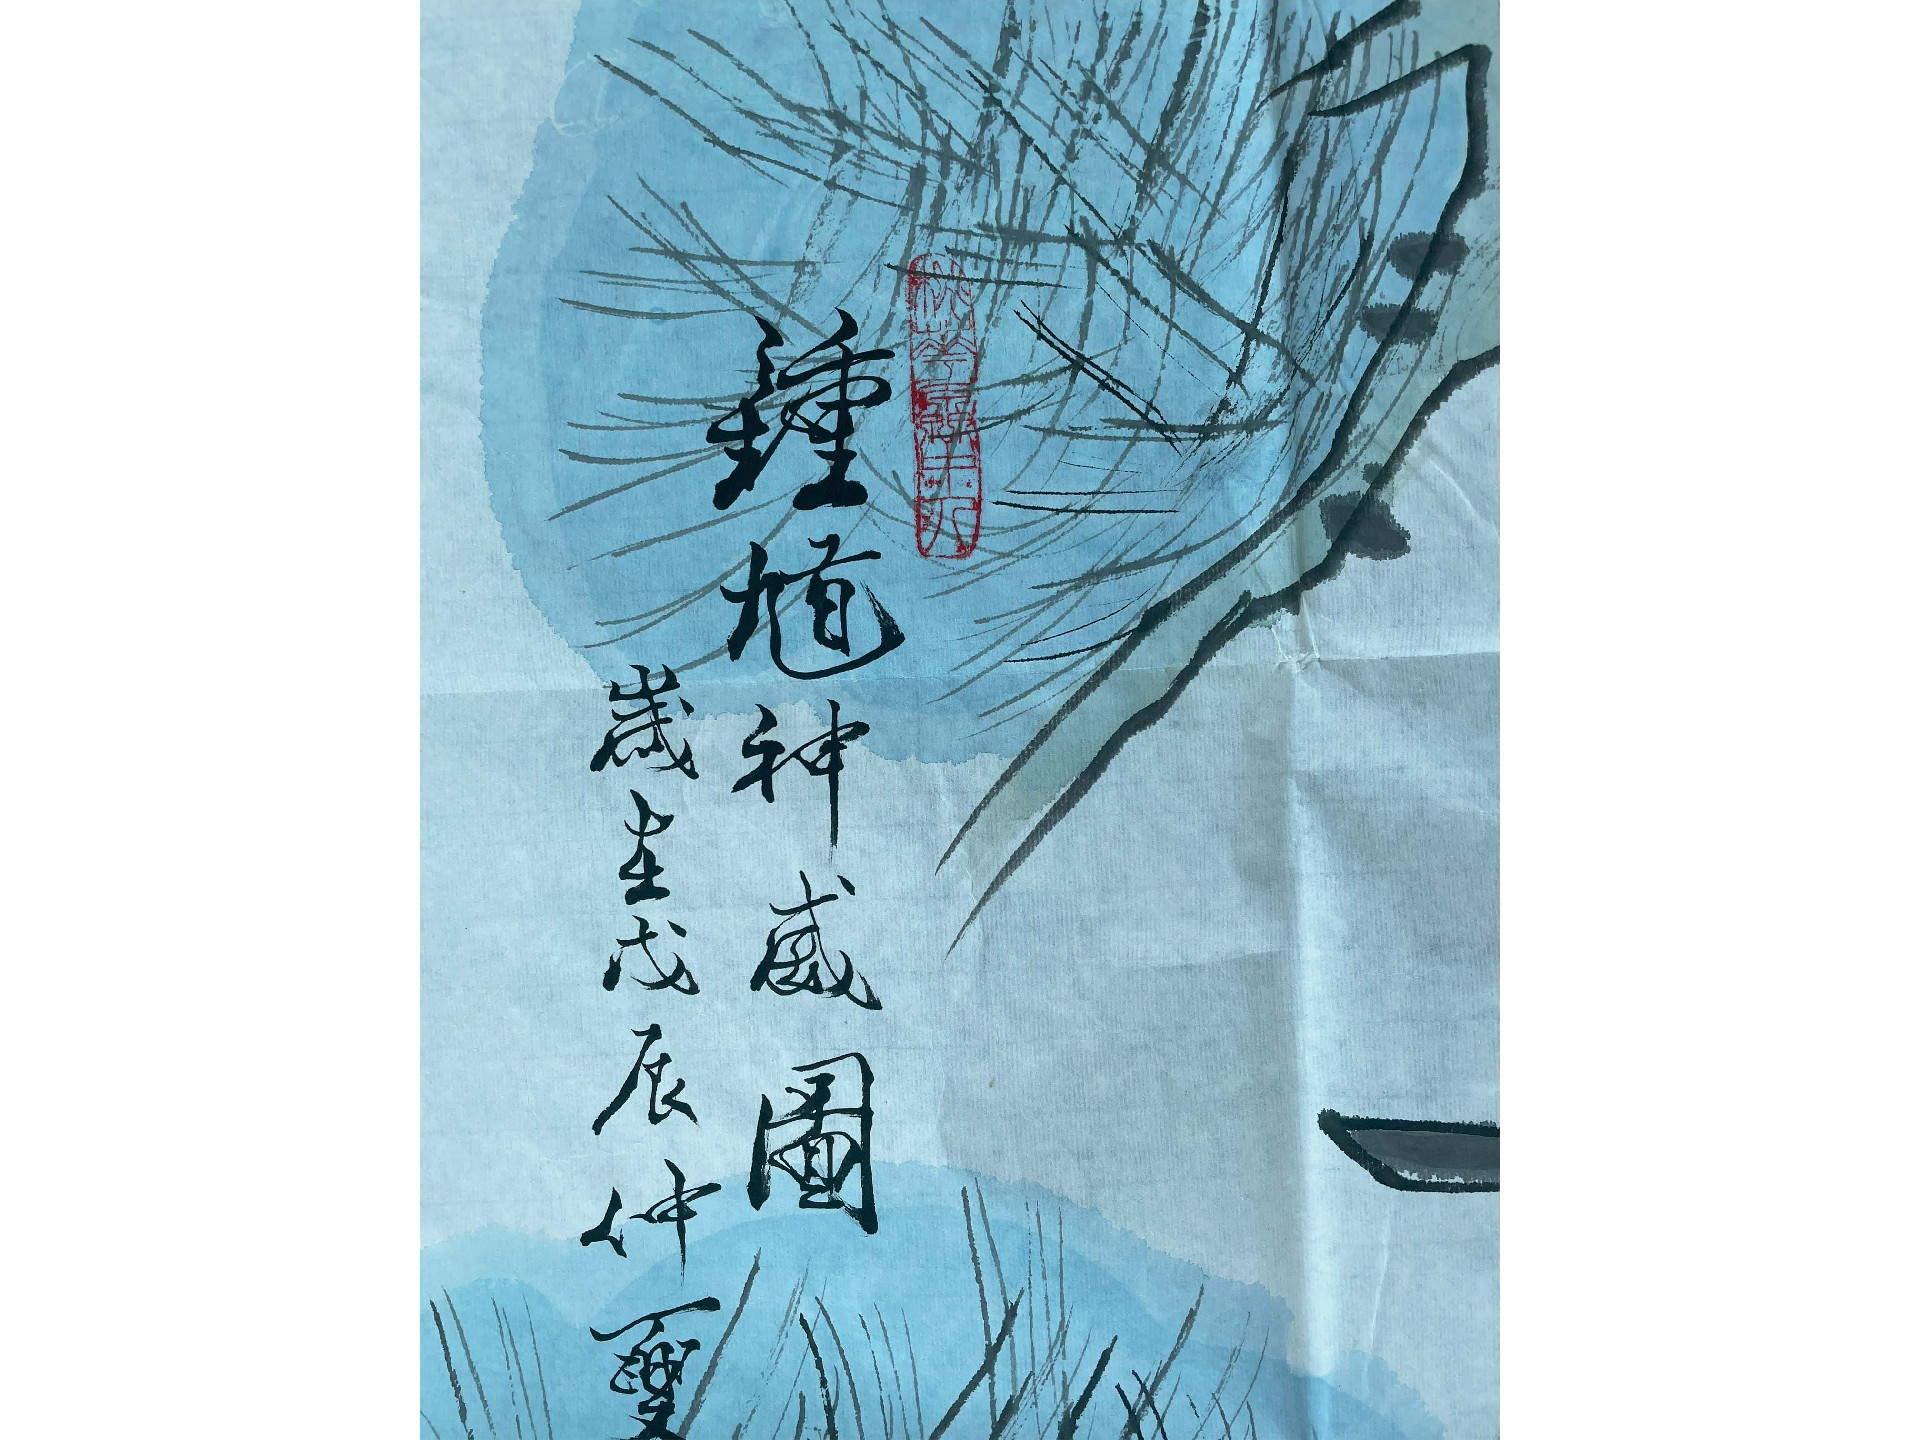 鍾馗神威圖
歲在戊辰仲夏